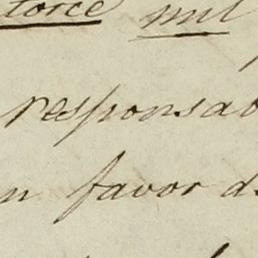 torce mil
responsab
n favor d